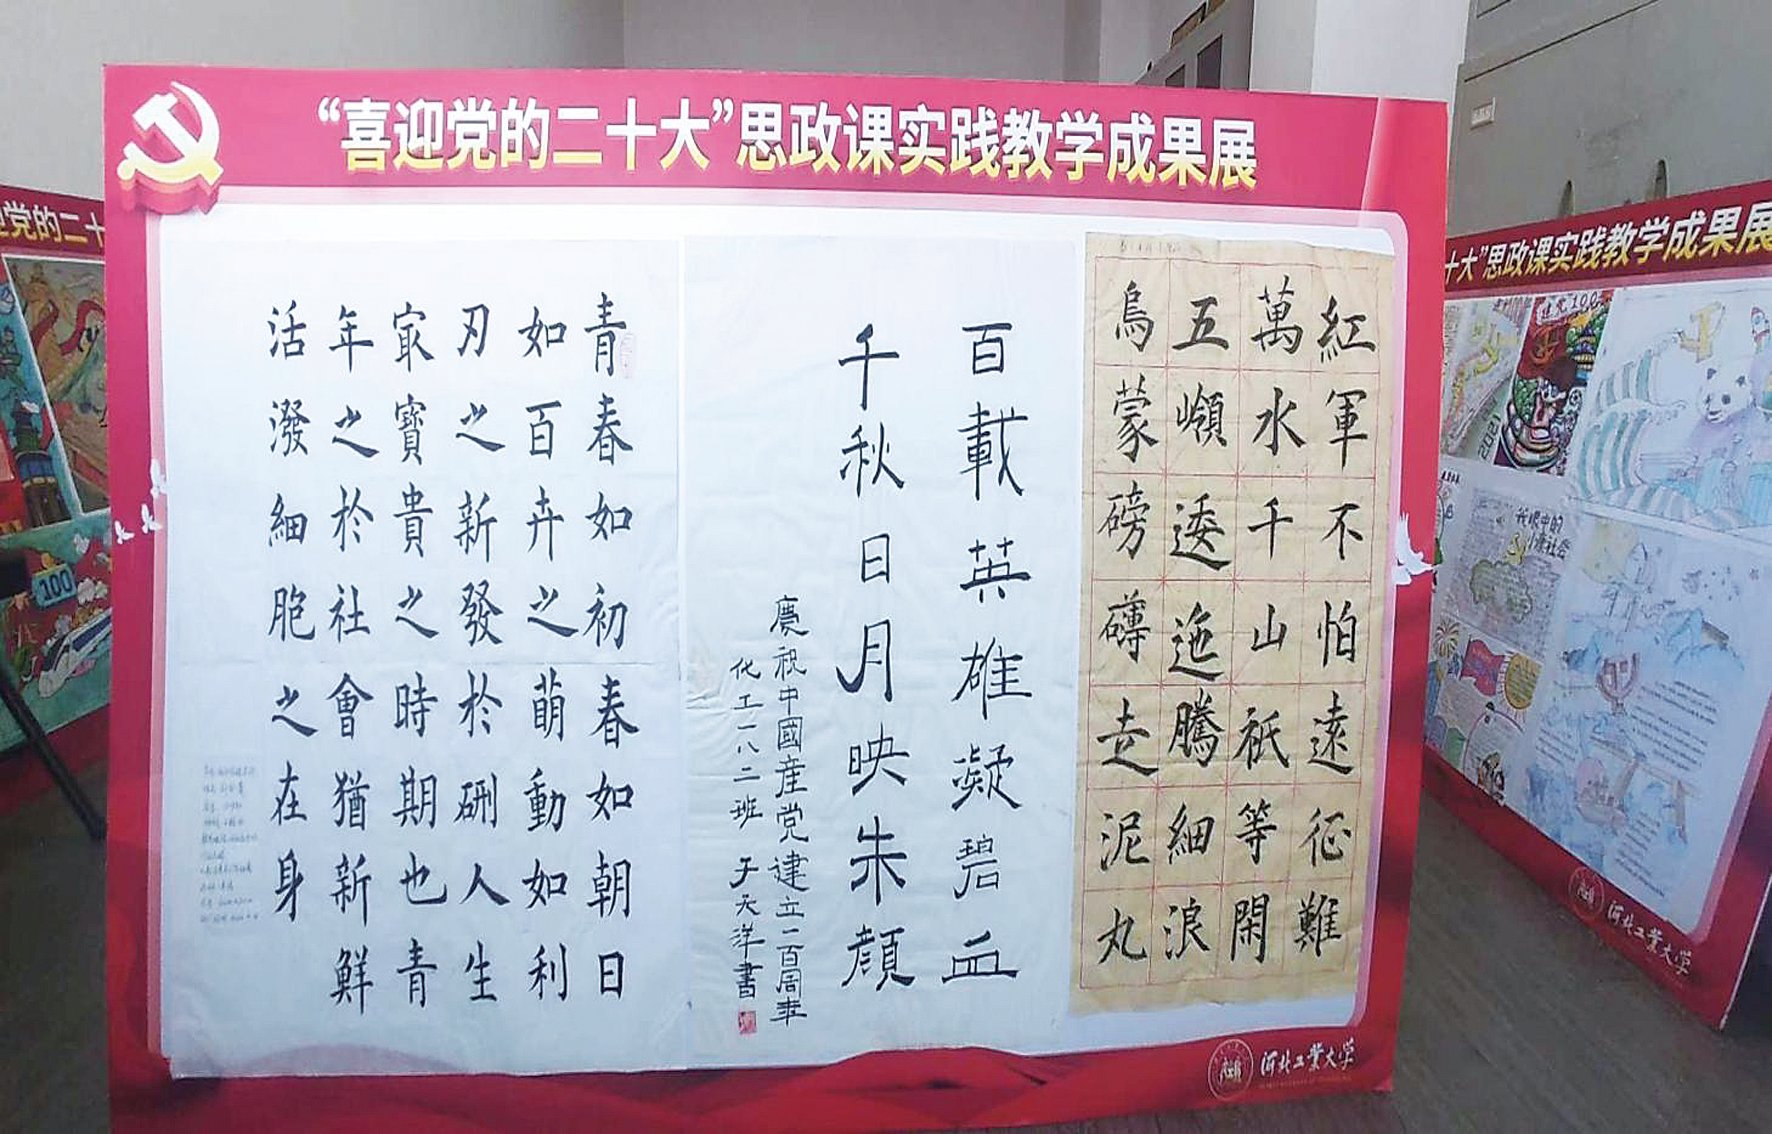 “喜迎党的二十大”思政课实践教学成果展
紅軍不怕遠征難
萬水千山祇等閑
五嶺逶迤騰細浪
烏蒙磅礴走泥丸
百載英雄凝碧血
千秋日月映朱顏
慶祝中國産党建立一百周年
化工一八二班 于天洋書
青春如初春如朝日
如百卉之萌動如利
刃之新發於硎人生
㝡寶貴之時期也青
年之於社會猶新鮮
活潑細胞之在身
河北工業大学
党的二十
100
十大”思政课实践教学成果展
建党100
2021
我眼中的
小康社会
河北工業大学